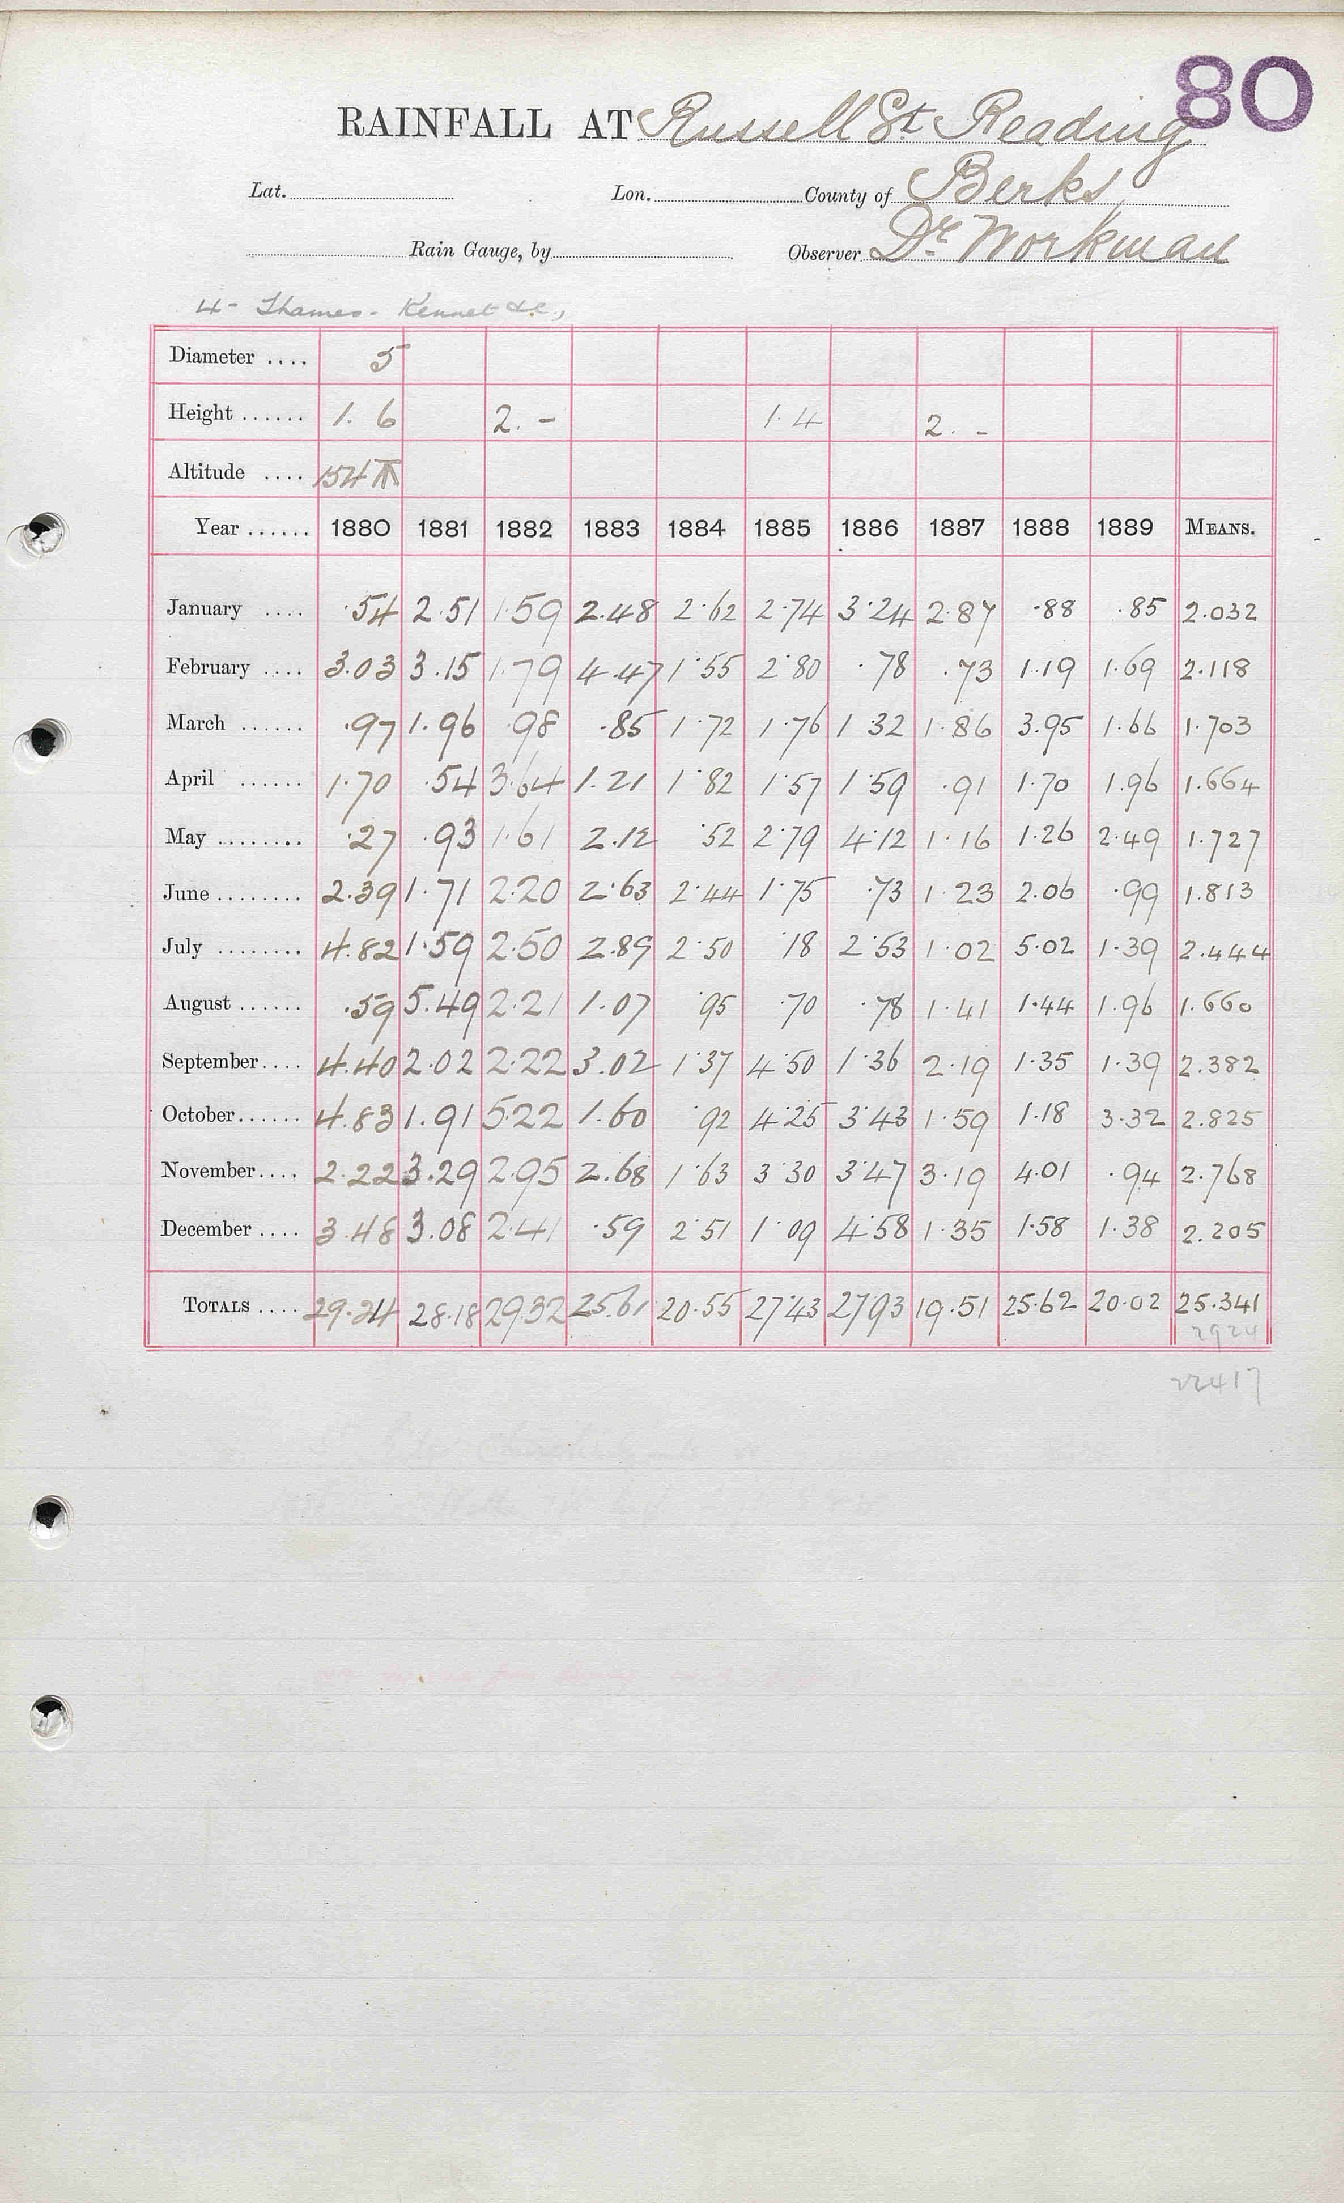 80
RAINFALL AT Russell St Reading
Lat. Lon. County of Berks
Rain Gauge, by Observer Dr. Workman
4- Thames - Kennet &c,
Diameter .... 5
Height ...... 1. 6 2. - 1. 4 2. -
Altitude .... 154
Year ...... 1880 1881 1882 1883 1884 1885 1886 1887 1888 1889 MEANS.
January .... .54 2.51 1.59 2.48 2.62 2.74 3.24 2.87 .88 .85 2.032
February .... 3.03 3.15 1.79 4.47 1.55 2.80 .78 .73 1.19 1.69 2.118
March ...... .97 1.96 .98 .85 1.72 1.76 1.32 1.86 3.95 1.66 1.703
April ...... 1.70 .54 3.64 1.21 1.82 1.57 1.59 .91 1.70 1.96 1.664
May ........ .27 .93 1.61 2.12 .52 2.79 4.12 1.16 1.26 2.49 1.727
June ........ 2.39 1.71 2.20 2.63 2.44 1.75 .73 1.23 2.06 .99 1.813
July ........ 4.82 1.59 2.50 2.89 2.50 .18 2.53 1.02 5.02 1.39 2.444
August ...... .59 5.49 2.21 1.07 .95 .70 .78 1.41 1.44 1.96 1.660
September .... 4.40 2.02 2.22 3.02 1.37 4.50 1.36 2.19 1.35 1.39 2.382
October ...... 4.83 1.91 5.22 1.60 .92 4.25 3.43 1.59 1.18 3.32 2.825
November .... 2.22 3.29 2.95 2.68 1.63 3.30 3.47 3.19 4.01 .94 2.768
December .... 3.48 3.08 2.41 .59 2.51 1.09 4.58 1.35 1.58 1.38 2.205
TOTALS .... 29.24 28.18 29.32 25.61 20.55 27.43 27.93 19.51 25.62 20.02 25.341
2924
22417